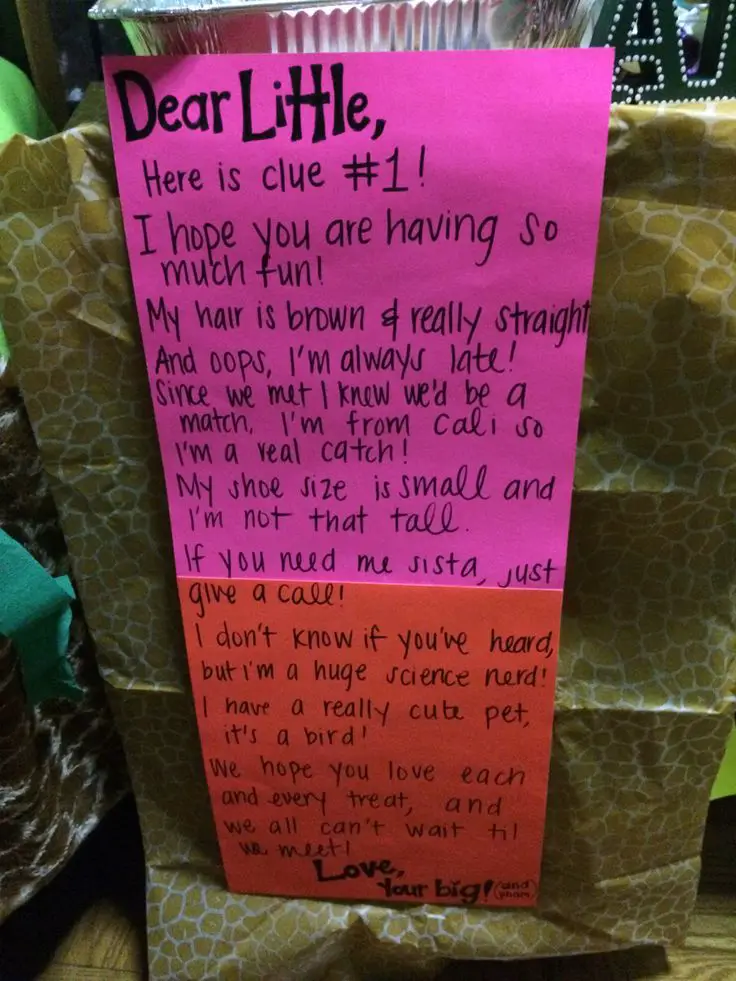 Dear Little,
Here is clue #1!
I hope you are having so
much fun!
My hair is brown & really straight
And oops, I'm always late!
Since we met I knew we'd be a
match, I'm from Cali so
I'm a real catch!
My shoe size is small and
I'm not that tall.
If you need me sista, just
give a call!
I don't know if you've heard,
but i'm a huge science nerd!
I have a really cute pet,
it's a bird!
We hope you love each
and every treat, and
we all can't wait til
we meet!
Love,
Your big! (and
pham)